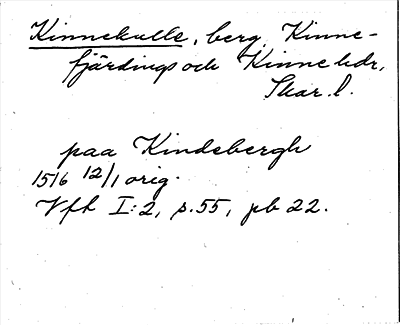 Kinnekulle, berg Kinne-
fjärdings och Kinne hdr,
Skar. l.
paa Kindebergh
1516 12/1 orig.
Vfh I:2, s.55, pb 22.